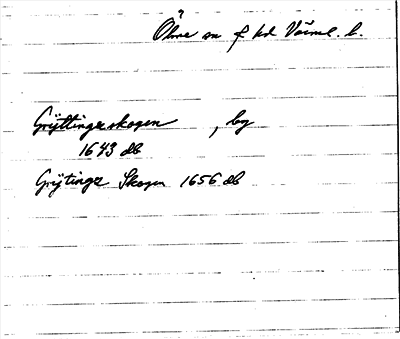 Ölme sn f hd Värml. l.
Gryttingeskogen , by
1643 db
Grytinge Skogen 1656 db